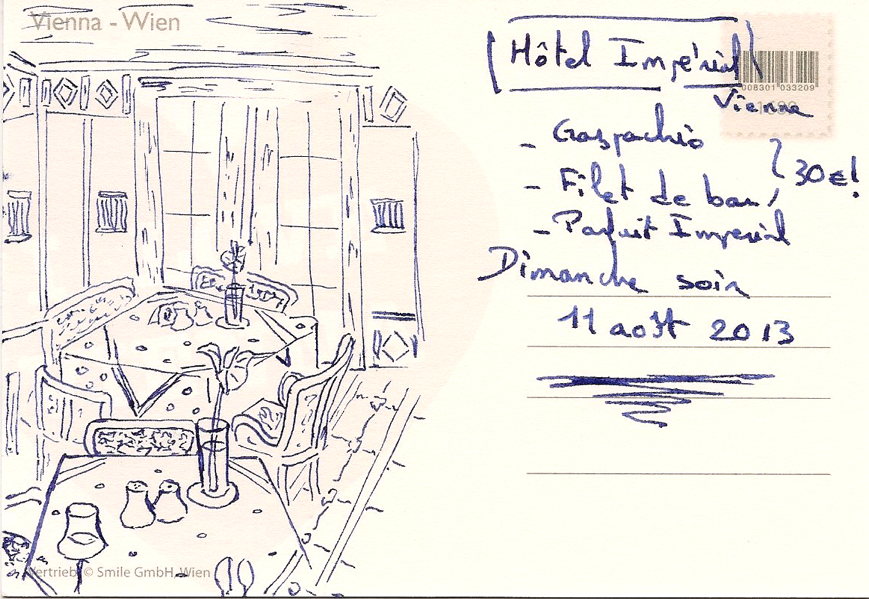 Vienna - Wien
Hôtel Impérial
008301 033209
Vienna
- Gaspachio
- Filet de bar
30€!
- Parfait Imperial
Dimanche soir
11 août 2013
Vertrieb: © Smile GmbH, Wien